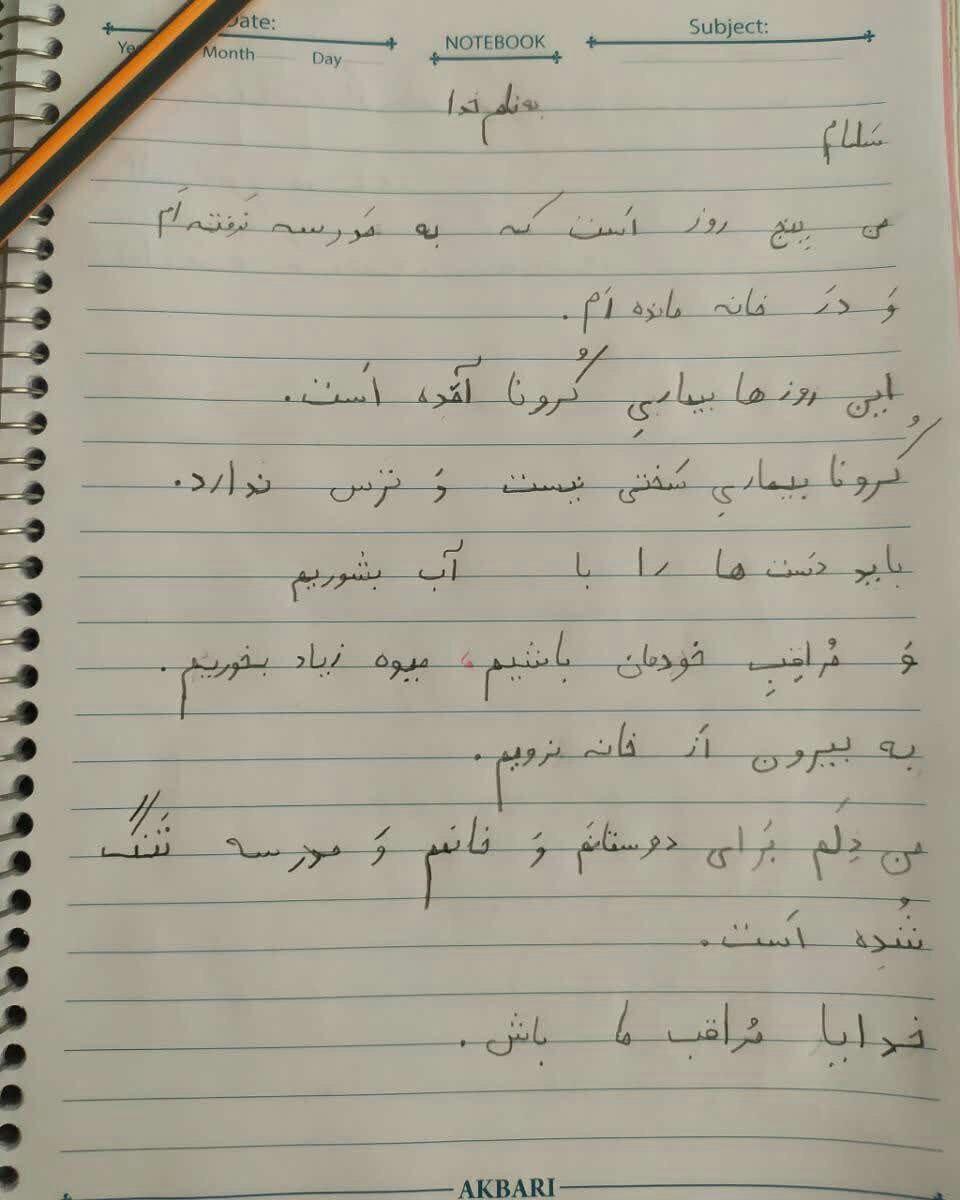 Date:
Year Month Day
NOTEBOOK
Subject:
به نام خدا
سَلام
من پِنج روز اَست که به مَدرسه نَرفته اَم
وَ دَر خانه مانده اَم.
این روز ها بیماریِ کُرونا آمَده اَست.
کُرونا بیماریِ سَختی نیست وَ تَرس ندارد.
باید دَست ها را با آب بشوریم
وَ مُراقِبِ خودمان باشیم، میوه زیاد بخوریم.
به بیرون اَز خانه نرویم.
من دِلَم بَرای دوستانَم وَ خانم وَ مدرسه تَنگ
شُدِه اَست.
خدایا مُراقب ما باش.
AKBARI